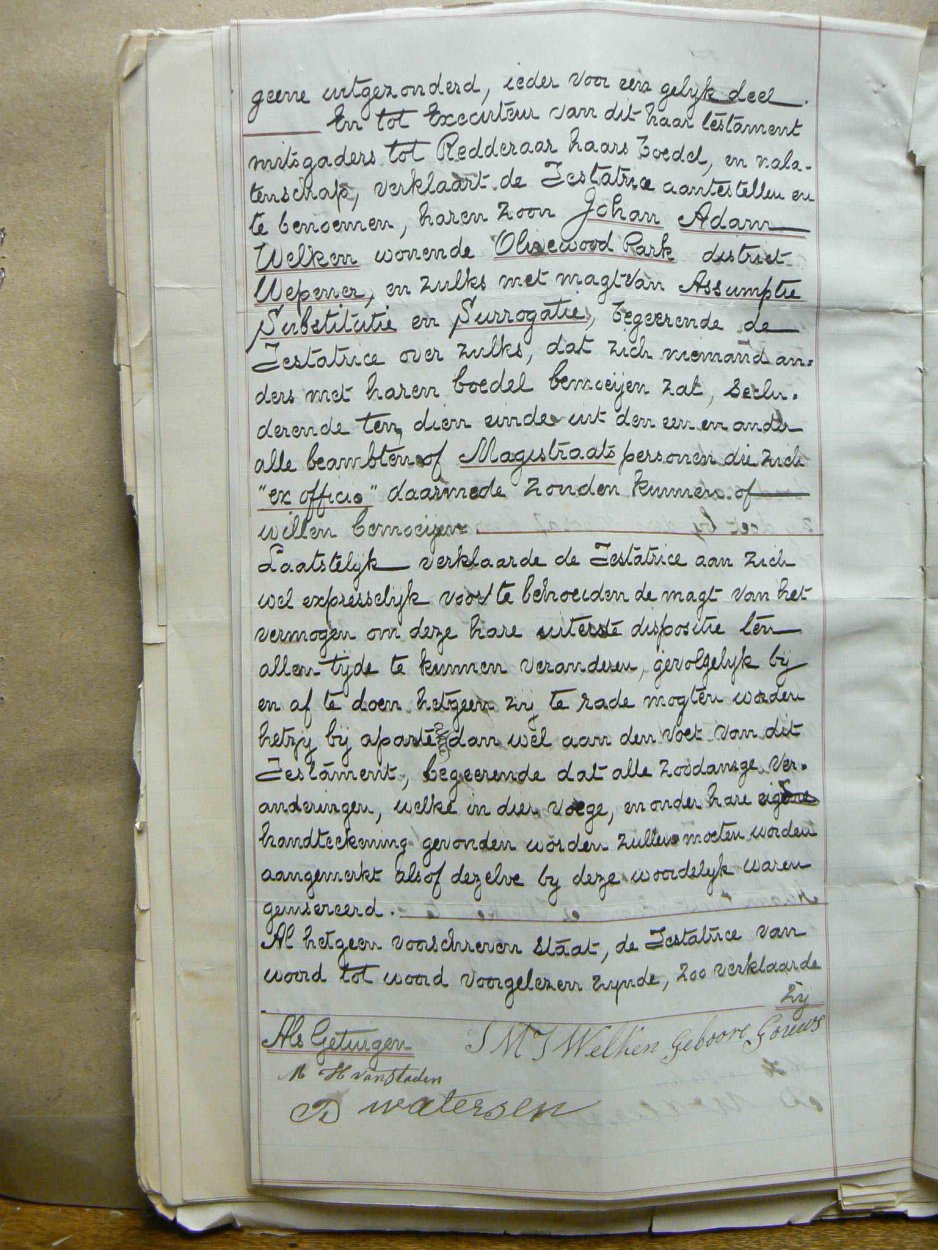 geene uitgezonderd, ieder voor een gelyk deel.
En tot Executeur van dit haar testament
mitsgaders tot Redderaar haars boedel, en nala-
tenschap, verklaart de Testatrice aantestellen en
te benoemen, haren zoon Johan Adam
Welken wonende Olivewood Park district
Wepener, en zulks met magt van Assumptie
Substitutie en Surrogatie, begeerende de
Testatrice over zulks, dat zich niemand an-
ders met haren boedel bemoeijen zat, Seclu-
derende ten dien einde uit den een en ander
alle beambten of Magistraats personen die zich
"ex officio" daarmede zouden kunnen of
willen bemoeijen
Laatstelyk verklaarde de Testatrice aan zich
wel expresselyk voor te behouden de magt van het
vermogen om deze hare uiterste dispositie ten
allen tyde te kunnen veranderen, gevolgelyk by
en af te doen hetgeen zy te rade mogten worden
hetzy by aparte dan wel aan den voet van dit
Testament, begeerende dat alle zoodanige ver-
anderingen, welke in dier voege, en onder hare
handteekening gevonden worden zullen moeten worden
aangemerkt alsof dezelve by deze woordelyk waren
geinsereerd.
Al hetgeen voorschreven staat, de Testatrice van
woord tot woord voorgelezen zynde, zoo verklaarde
Zy
Als Getuigen
S M J Welken geboore Gouws
M H van Staden
D watersen